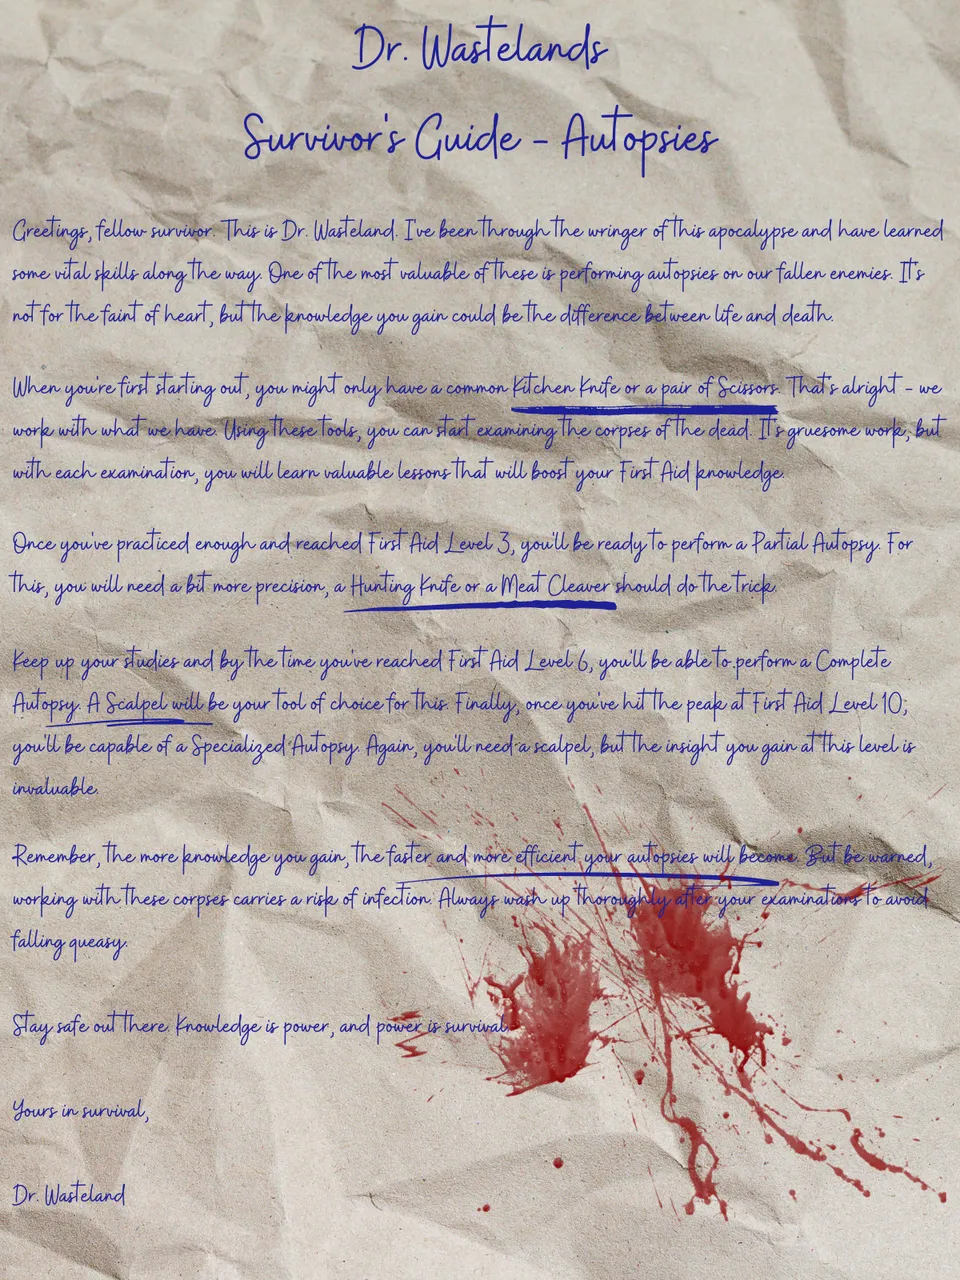 Dr. Wastelands
Survivor's Guide - Autopsies
Greetings, fellow survivor. This is Dr. Wasteland. I've been through the wringer of this apocalypse and have learned
some vital skills along the way. One of the most valuable of these is performing autopsies on our fallen enemies. It's
not for the faint of heart, but the knowledge you gain could be the difference between life and death.
When you're first starting out, you might only have a common Kitchen Knife or a pair of Scissors. That's alright - we
work with what we have. Using these tools, you can start examining the corpses of the dead. It's gruesome work, but
with each examination, you will learn valuable lessons that will boost your First Aid knowledge.
Once you've practiced enough and reached First Aid Level 3, you'll be ready to perform a Partial Autopsy. For
this, you will need a bit more precision, a Hunting Knife or a Meat Cleaver should do the trick.
Keep up your studies and by the time you've reached First Aid Level 6, you'll be able to perform a Complete
Autopsy. A Scalpel will be your tool of choice for this. Finally, once you've hit the peak at First Aid Level 10;
you'll be capable of a Specialized Autopsy. Again, you'll need a scalpel, but the insight you gain at this level is
invaluable.
Remember, the more knowledge you gain, the faster and more efficient your autopsies will become. But be warned,
working with these corpses carries a risk of infection. Always wash up thoroughly after your examinations to avoid
falling queasy.
Stay safe out there. Knowledge is power, and power is survival.
Yours in survival,
Dr. Wasteland